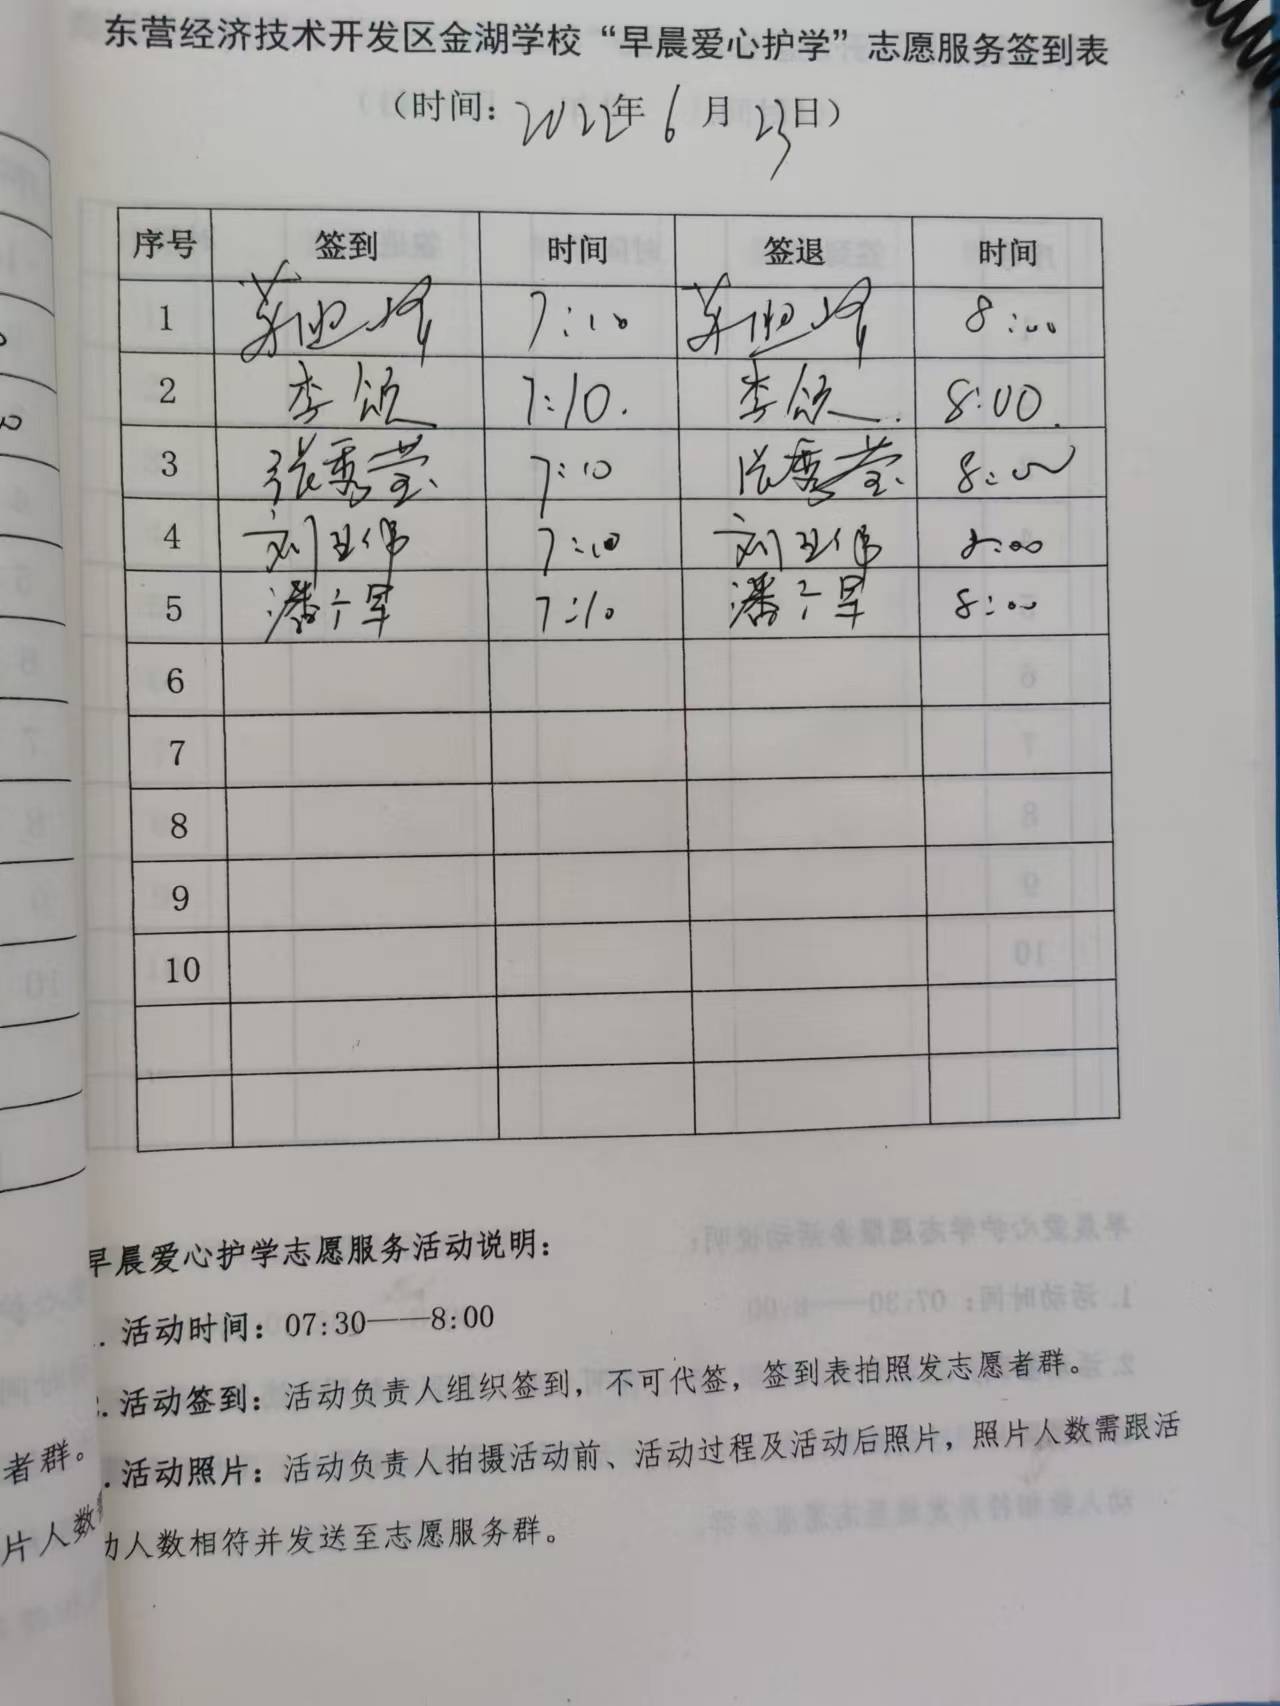 东营经济技术开发区金湖学校“早晨爱心护学”志愿服务签到表
（时间：2022年6月23日）
序号 签到 时间 签退 时间
1 7:10 8:00
2 李颂 7:10. 李颂. 8:00.
3 张秀莹 7:10 张秀莹 8:00
4 刘卫伟 7:10 刘卫伟 8:00
5 潘 7:10 潘 8:00
6
7
8
9
10
早晨爱心护学志愿服务活动说明：
. 活动时间：07:30——8:00
. 活动签到：活动负责人组织签到，不可代签，签到表拍照发志愿者群。
. 活动照片：活动负责人拍摄活动前、活动过程及活动后照片，照片人数需跟活
动人数相符并发送至志愿服务群。
者群。
片人数